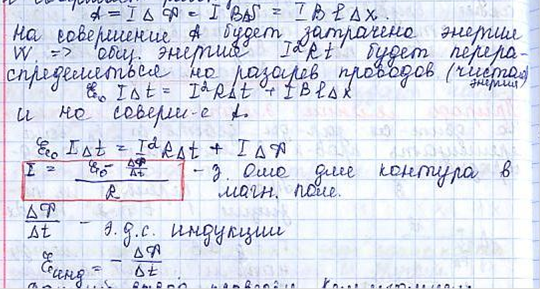 A = I Δ Φ = I B ΔS = I B ℓ Δx.
На совершение A будет затрачена энергия
W => общ. энергия I²Rt будет перера-
спределяться на разогрев проводов (чистая энергия)
ℰ₀ I Δt = I²RΔt + I B ℓ Δx
и на соверш-е A.
ℰ₀ I Δt = I²RΔt + I ΔΦ
I = (ℰ₀ - ΔΦ/Δt)/R - з. Ома для контура в
магн. поле.
ΔΦ/Δt - э.д.с. индукции
ℰинд = - ΔΦ/Δt